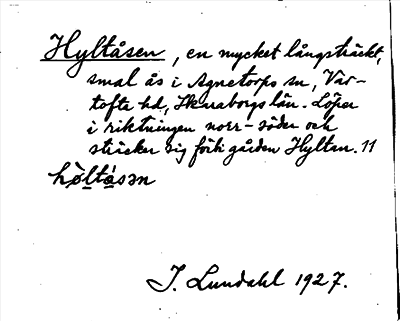 Hyltåsen, en mycket långsträckt,
smal ås i Agnetorps sn, Var-
tofta hd, Skaraborgs län. Löper
i riktningen norr-söder och
sträcker sig förbi gården Hyltan. 11
hòltásən
J. Lundahl 1927.